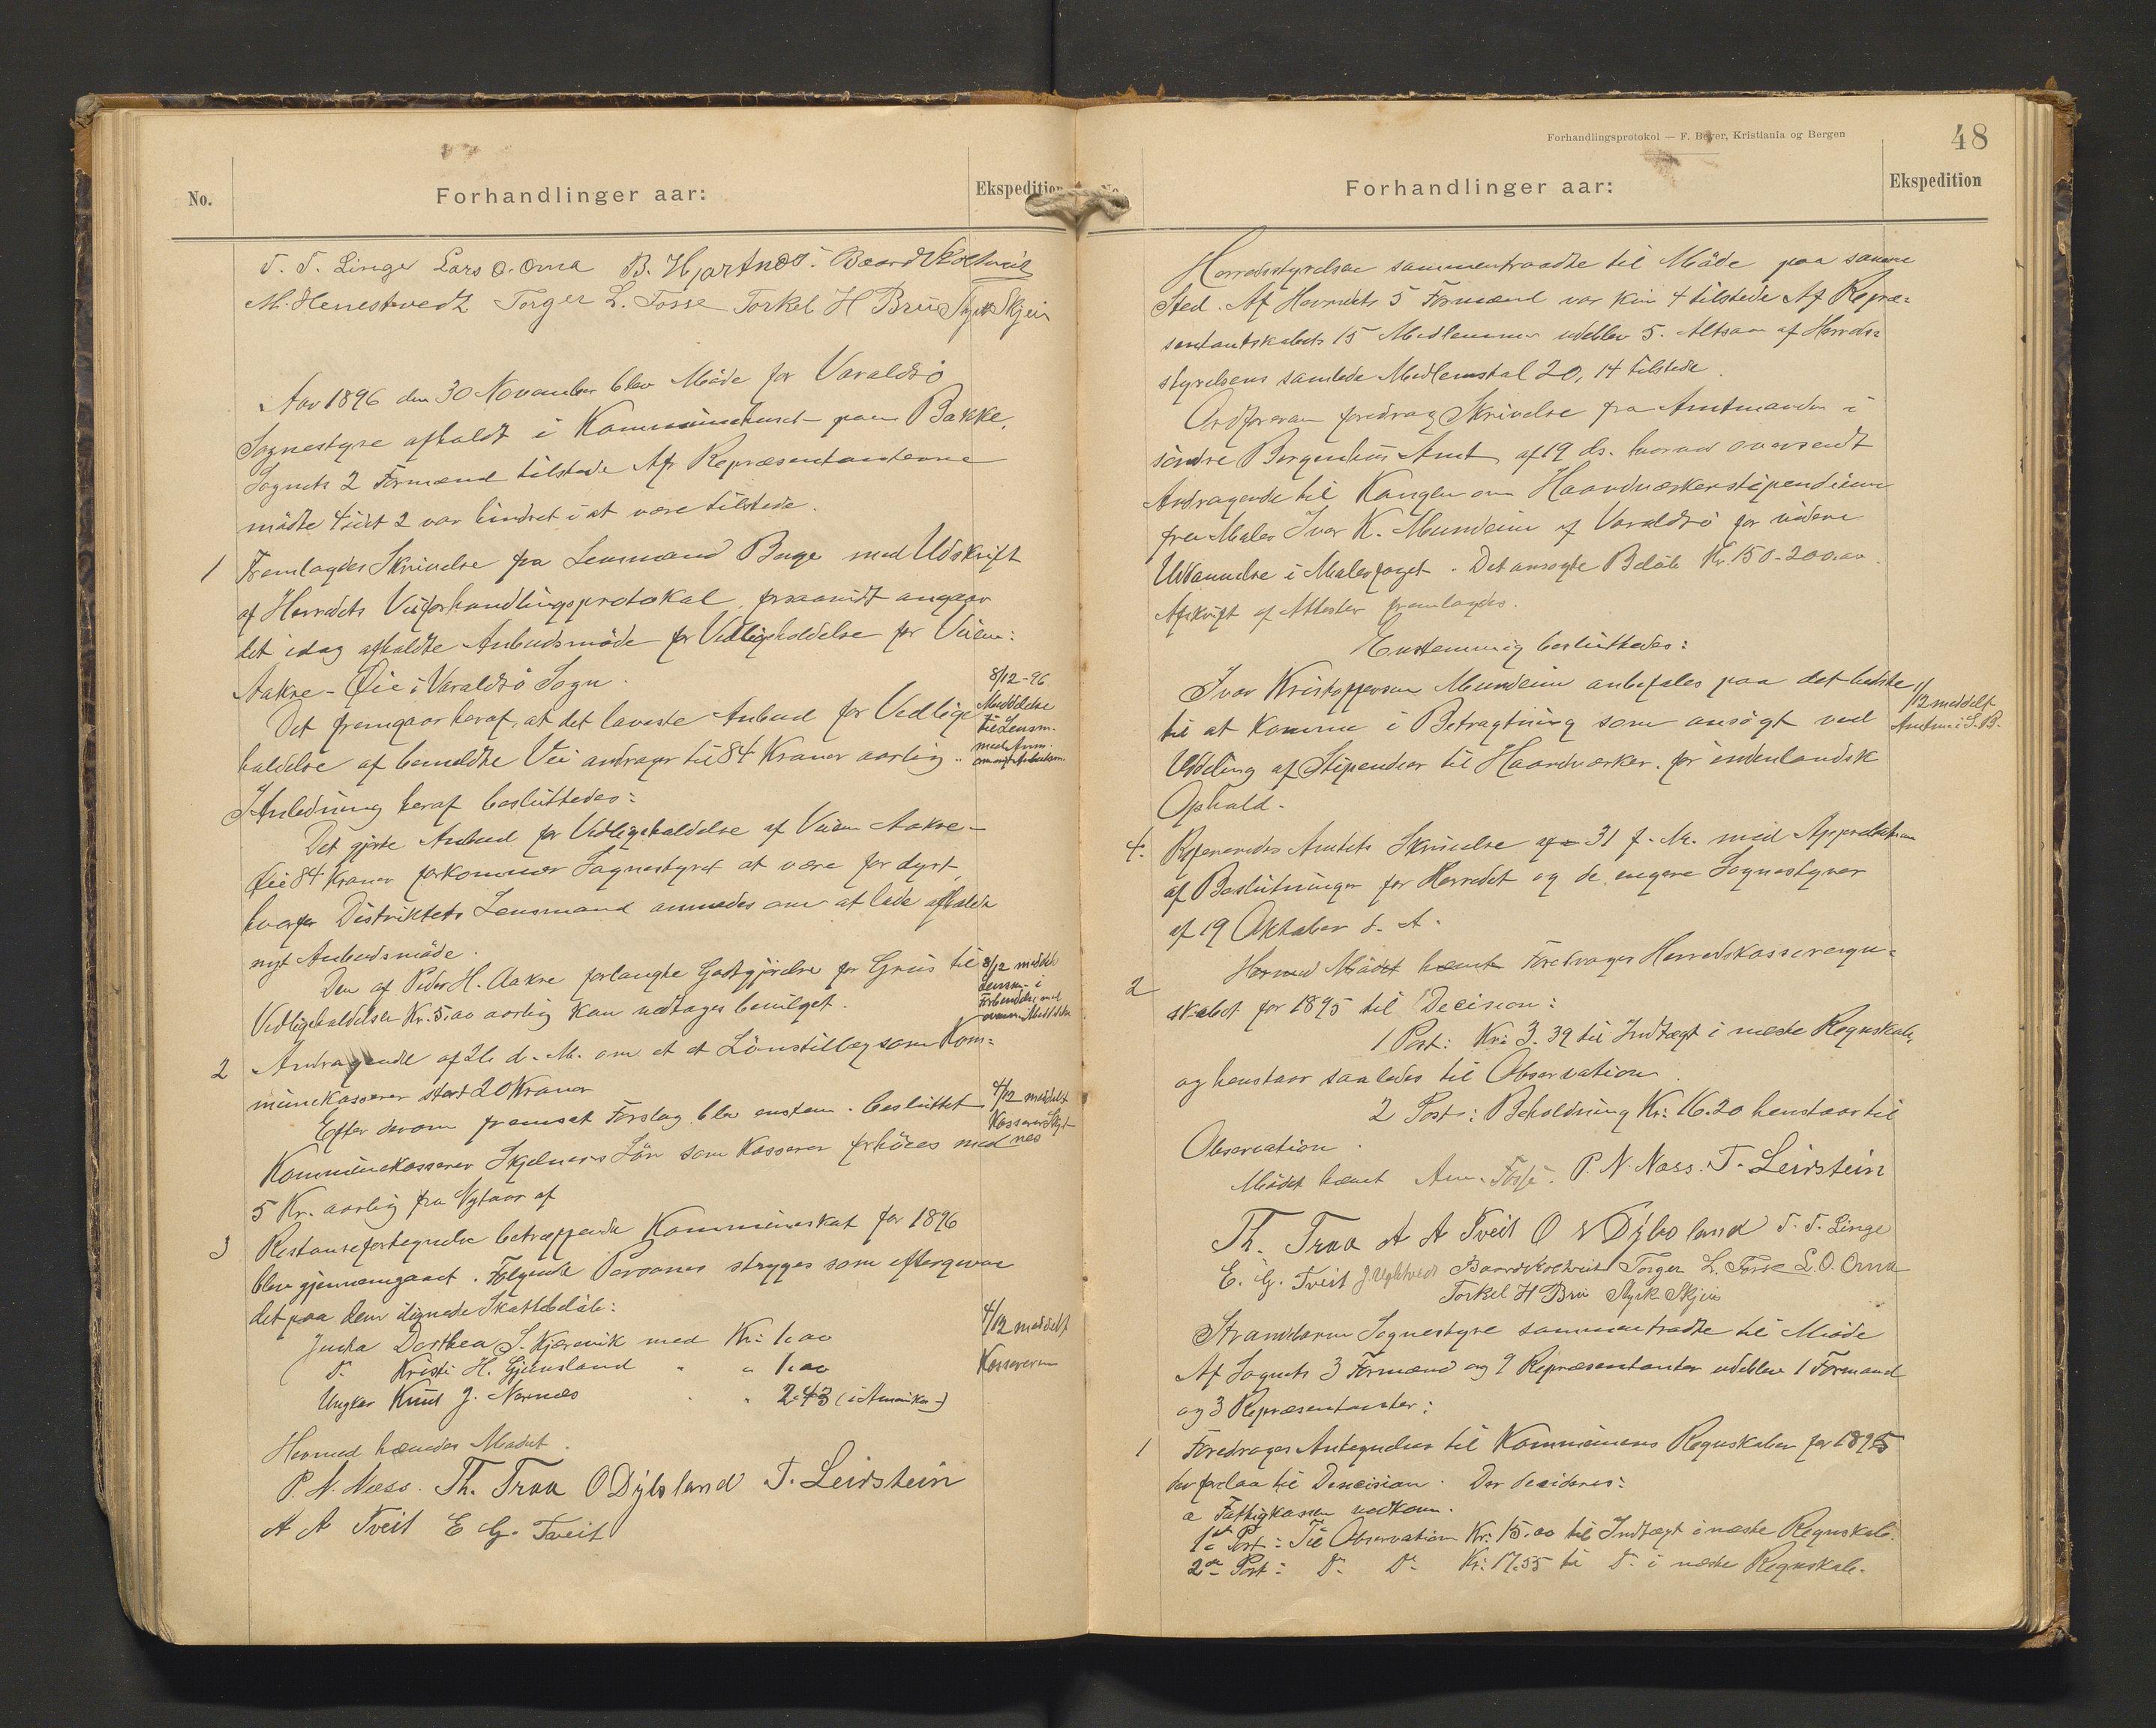 No.
Forhandlinger aar:
Ekspedition
T. T. Linge Lars O. Oma B. Hjartnes. Baard Koltveit
M. Henestvedt Torger L. Fosse Torkel H Brue Styrk Skjeie
Aar 1896 den 30 November blev Möde for Varaldsö
Sognestyre afholdt i Kommunehuset paa Bakke.
Sognets 2 Formænd tilstede Af Repræsentanterne
mödte 4 idet 2 var hindret i at være tilstede.
1 Fremlagdes Skrivelse fra Lensmand Bage med Udskrift
af Herredets Veiforhandlingsprotokol, forsaavidt angaar
det idag afholdte Anbudsmöde for Vedligeholdelse for Veien:
Aakre - Øie i Varaldsö Sogn.
Det fremgaar heraf, at det laveste Anbud for Vedlige
holdelse af bemeldte Vei andrager til 84 Kroner aarlig.
8/12-96
Meddelelse
til Lensm.
med Anm.
om nyt Anbudsm.
I Anledning heraf besluttedes:
Det gjorte Anbud for Vedligeholdelse af Veien Aakre-
Øie 84 Kroner forkommer Sognestyret at være for dyrt,
hvorfor Distriktets Lensmand anmodes om at lade afholde
nyt Anbudsmöde.
Den af Peder H. Aakre forlangte Godtgjörelse for Grus til
Vedligeholdelse Kr. 5.00 aarlig kan vedtages bevilget.
8/12 meddelt
Lensm. i
Forbindelse med
2 Andragende af 26 d. M. om et Lönstillæg som Kom-
munekasserer stort 20 Kroner
Efter derom fremsat Forslag blev enstem. besluttet
Kommunekasserer Skjelnes Lön som Kasserer forhöies med
5 Kr. aarlig fra Nytaar af
4/12 meddelt
Kasserer Skjel-
nes
3 Restancefortegnelse betræffende Kommuneskat for 1896
blev gjennemgaaet. Følgende Personer stryges som eftergivne
det paa dem ilignede Skattebelöb:
Jenta Dorthea S. Kjærevik med Kr: 1.00
D. Kristi H. Gjuvsland " " 1.00
Ungkar Knut J. Nernæs " " 2.43 (i Amerika)
4/12 meddelt
Kassereren
Hermed hævedes Mödet.
P. N. Næss. Th. Traa O Dybsland T. Leirstein
A A Tveit E G. Tveit
Forhandlingsprotokol — F. Beyer, Kristiania og Bergen
48
No.
Forhandlinger aar:
Ekspedition
Herredsstyrelsen sammentraadte til Möde paa samme
Sted. Af Herredets 5 Formænd var kun 4 tilstede Af Repræ-
sentantskabets 15 Medlemmer udeblev 5. Altsaa af Herreds-
styrelsens samlede Medlemstal 20, 14 tilstede.
Ordføreren foredrog Skrivelse fra Amtmanden i
söndre Bergenhus Amt af 19 ds. hvorved oversendt
Andragende til Kongen om Haandværkerstipendium
fra Maler Ivar K. Mundeim af Varaldsö for videre
Uddannelse i Malerfaget. Det ansøgte Belöb Kr. 150-200.00
Afskrift af Attester fremlagdes.
Enstemmig besluttedes:
Ivar Kristoffersen Mundeim anbefales paa det bedste
til at komme i Betragtning som ansögt ved
Uddeling af Stipendier til Haandværker for indenlandsk
Ophold.
1/12 meddelt
Amtm. i S. B.
4. Refereredes Amtets Skrivelse af 31 f. M. med Approbation
af Beslutninger for Herredet og de engere Sognestyrer
af 19 Oktober d. A.
Hermed Mödet hævet Foredroges Herredskasseregn-
2 skabet for 1895 til Decision:
1 Post: Kr: 3.39 til Indtægt i næste Regnskab,
og henstaar saaledes til Observation.
2 Post: Beholdning Kr: 16.20 henstaar til
Observation.
Mödet hævet Am. Fosse. P. N. Næss. T. Leirstein
Th. Traa A A Tveit O Dybsland T. T. Linge
E. G. Tveit Baard Koltveit Torger L. Fosse L. O. Oma
Torkel H Brue Styrk Skjeie
Strandebarm Sognestyre sammentraadte til Möde
Af Sognets 3 Formænd og 9 Repræsentanter udeblev 1 Formand
og 3 Repræsentanter:
1 Foredroges Antegnelser til Kommunens Regnskaber for 1895
der forlaa til Descision. Der decideres:
a Fattigkassen vedkom.
1ste Post: Til Observation Kr: 15.00 til Indtægt i næste Regnskab.
2den Post: D. D. Kr: 17.55 til D. i næste Regnskab.